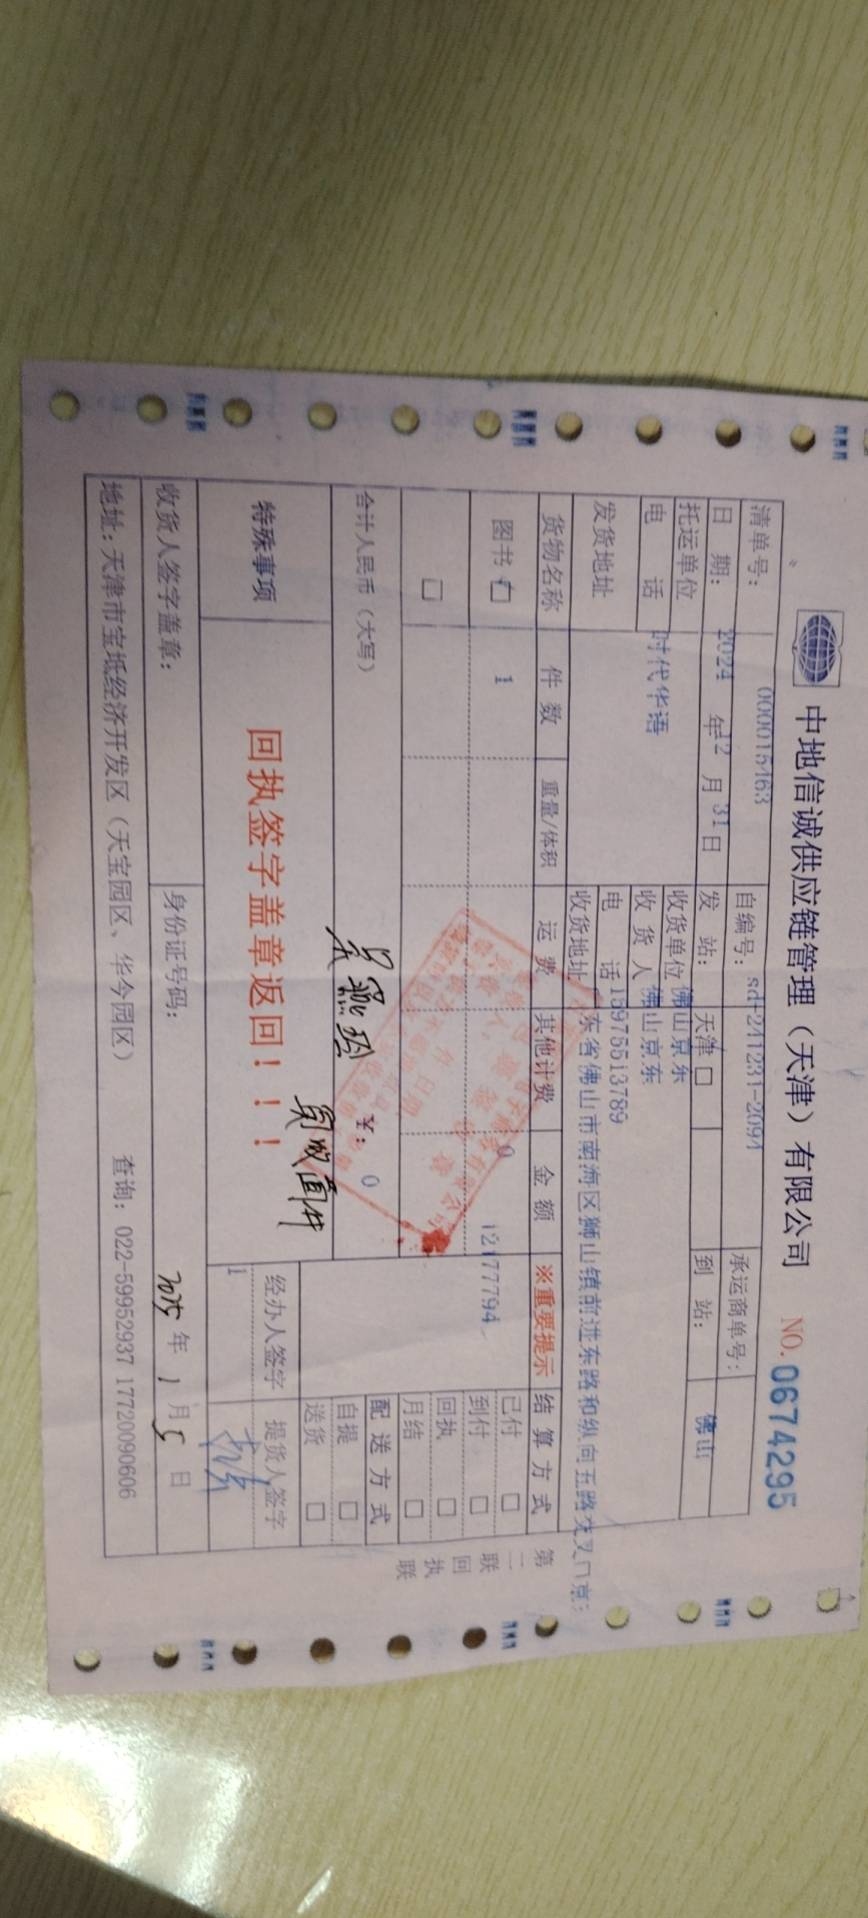 中地信诚供应链管理（天津）有限公司 NO. 0674295
清单号： 000015463 自编号： sd-241231-2094 承运商单号：
日 期： 2024 年 12 月 31 日 发 站： 天津 □ 到 站： 佛山
托运单位 收货单位 佛山京东
电 话 时代华语 收 货 人 佛山京东
电 话 15975513789
发货地址 收货地址 东省佛山市南海区狮山镇前进东路和纵向五路交叉口京
货物名称 件 数 重量/体积 运 费 其他计费 金 额 ※重要提示 结 算 方 式
图书 □ 1 0 12177794 已付 □
到付 □
□ 回执 □
月结 □
合计人民币（大写） ￥： 0 配 送 方 式
自提 □
送货 □
特殊事项 回执签字盖章返回！！！ 经办人签字 提货人签字
1
收货人签字盖章： 身份证号码： 2025 年 1 月 5 日
地址：天津市宝坻经济开发区（天宝园区、华今园区） 查询：022-59952937 17720090606
第二联 回执联